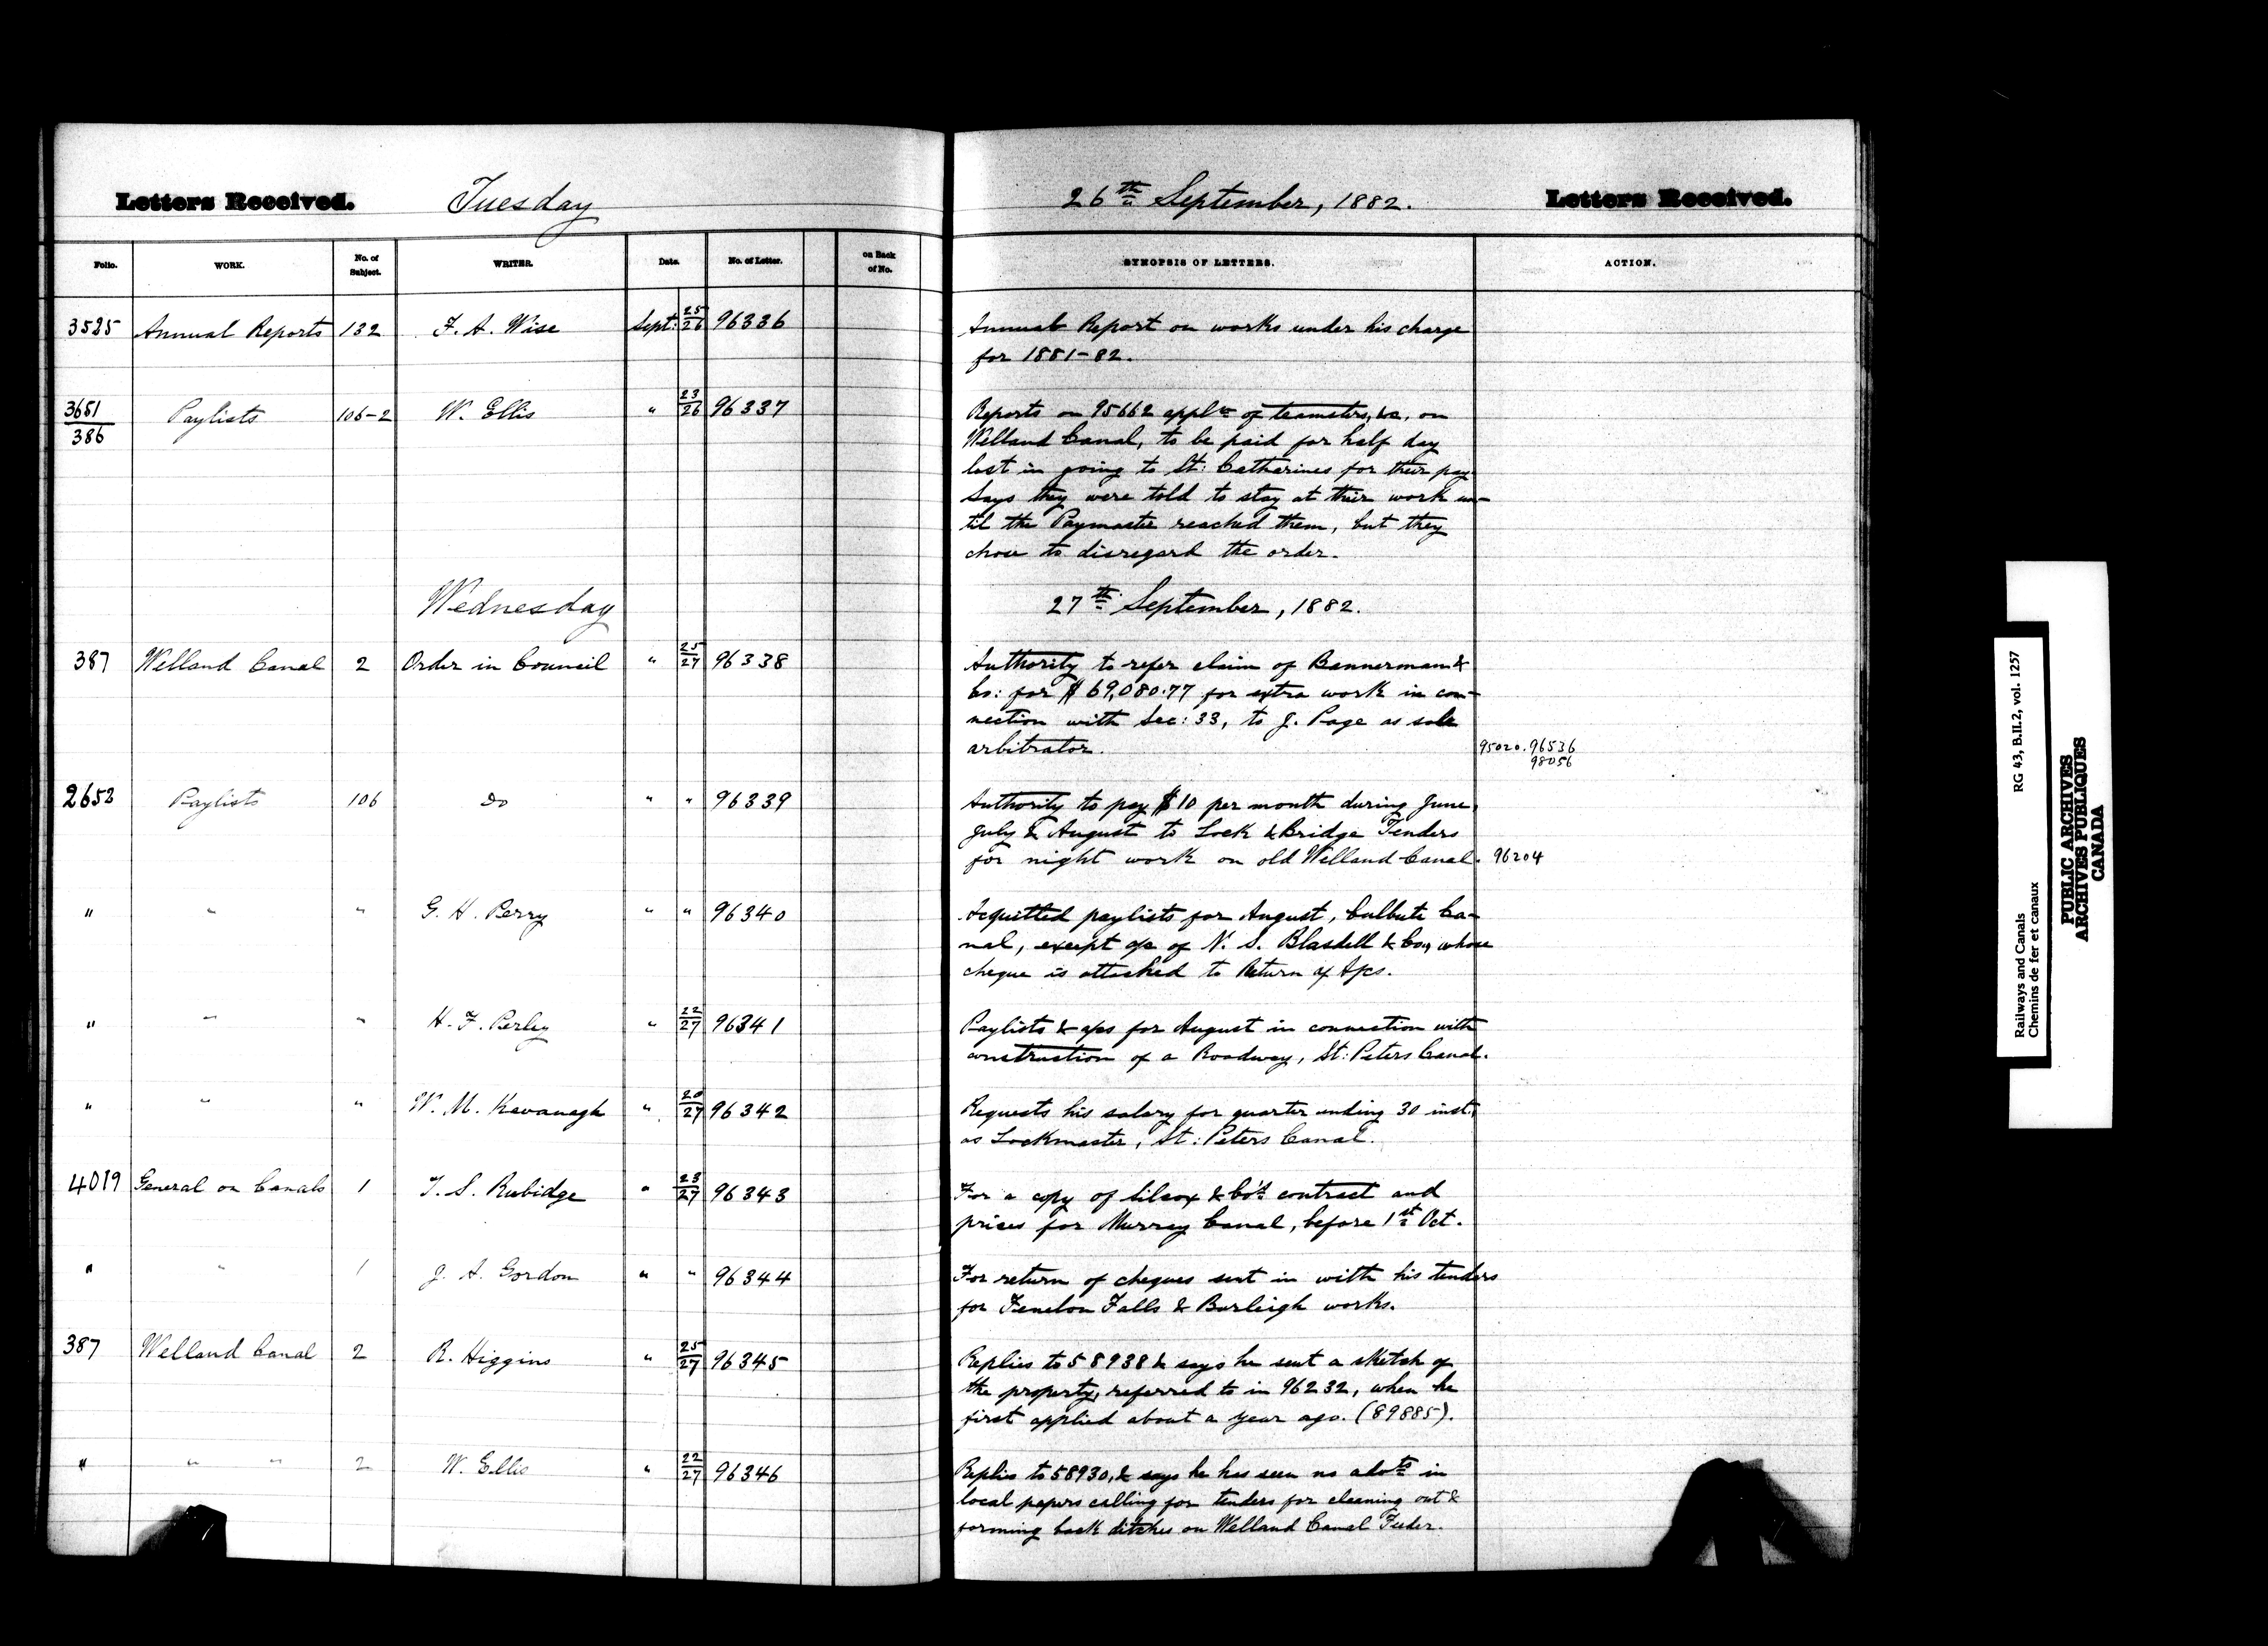 Letters Received. Tuesday 26th September, 1882. Letters Received.
Folio. WORK. No. of Subject. WRITER. Date. No. of Letter. on Back of No. SYNOPSIS OF LETTERS. ACTION.
3525 Annual Reports 132 F. A. Wise Sept: 25/26 96336 Annual Report on works under his charge
for 1881-82.
3651/386 Paylists 106-2 W. Ellis " 23/26 96337 Reports on 95662 appln of teamsters, &c, on
Welland Canal, to be paid for half day
lost in going to St: Catharines for their pay
Says they were told to stay at their work un-
til the Paymaster reached them, but they
chose to disregard the order.
Wednesday 27th September, 1882.
387 Welland Canal 2 Order in Council " 25/27 96338 Authority to refer claim of Bannerman &
Co: for $69,080.77 for extra work in con-
nection with Sec: 33, to J. Page as sole
arbitrator. 95020. 96536
98056
2652 Paylists 106 Do " " 96339 Authority to pay $10 per month during June,
July & August to Lock & Bridge Tenders
for night work on old Welland Canal. 96204
" " " G. H. Perry " " 96340 Acquitted paylists for August, Culbute Ca-
nal, except a/c of N. S. Blasdell & Co, whose
cheque is attached to Return of A/cs.
" " " H. F. Perley " 22/27 96341 Paylists & a/cs for August in connection with
construction of a Roadway, St: Peters Canal.
" " " W. M. Kavanagh " 20/27 96342 Requests his salary for quarter ending 30 inst:,
as Lockmaster, St: Peters Canal.
4019 General on Canals 1 T. S. Rubidge " 23/27 96343 For a copy of Silcox & Co's contract and
prices for Murray Canal, before 1st Oct.
" " 1 J. A. Gordon " " 96344 For return of cheques sent in with his tenders
for Fenelon Falls & Burleigh works.
387 Welland Canal 2 R. Higgins " 25/27 96345 Replies to 58938 & says he sent a sketch of
the property, referred to in 96232, when he
first applied about a year ago. (89885).
" " " 2 W. Ellis " 22/27 96346 Replies to 58930, & says he has seen no advts in
local papers calling for tenders for cleaning out &
forming back ditches on Welland Canal Feeder.
Railways and Canals RG 43, B.II.2, vol. 1257
Chemins de fer et canaux
PUBLIC ARCHIVES
ARCHIVES PUBLIQUES
CANADA